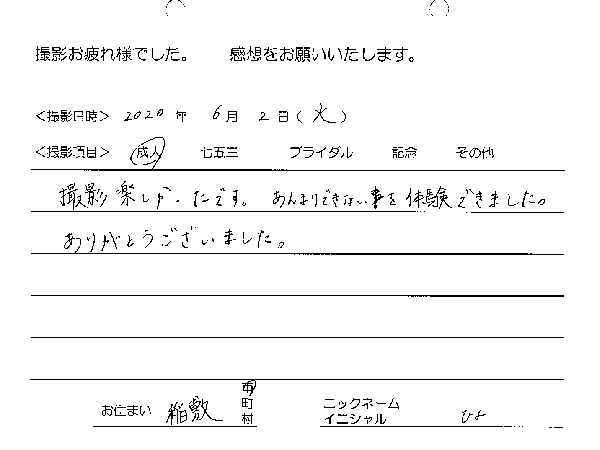 撮影お疲れ様でした。 感想をお願いいたします。
<撮影日時> 2020 年 6 月 2 日 ( 火 )
<撮影項目> 成人 七五三 ブライダル 記念 その他
撮影楽しかったです。あんまりできない事を体験できました。
ありがとうございました。
お住まい 稲敷 市 町 村 ニックネーム イニシャル